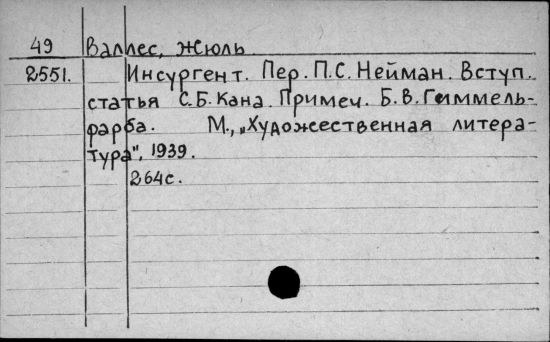 49 Валлес, Жюль
2551. Инсургент. Пер. П.С. Нейман. Вступ.
статья С.Б. Кана. Примеч. Б.В. Гиммель-
фарба. М., „Художественная литера-
тура", 1939.
264с.